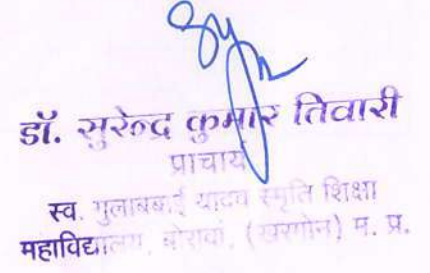 डॉ. सुरेन्द्र कुमार तिवारी
प्राचार्य
स्व. गुलाबबाई यादव स्मृति शिक्षा
महाविद्यालय, बोरावां, (खरगोन) म. प्र.